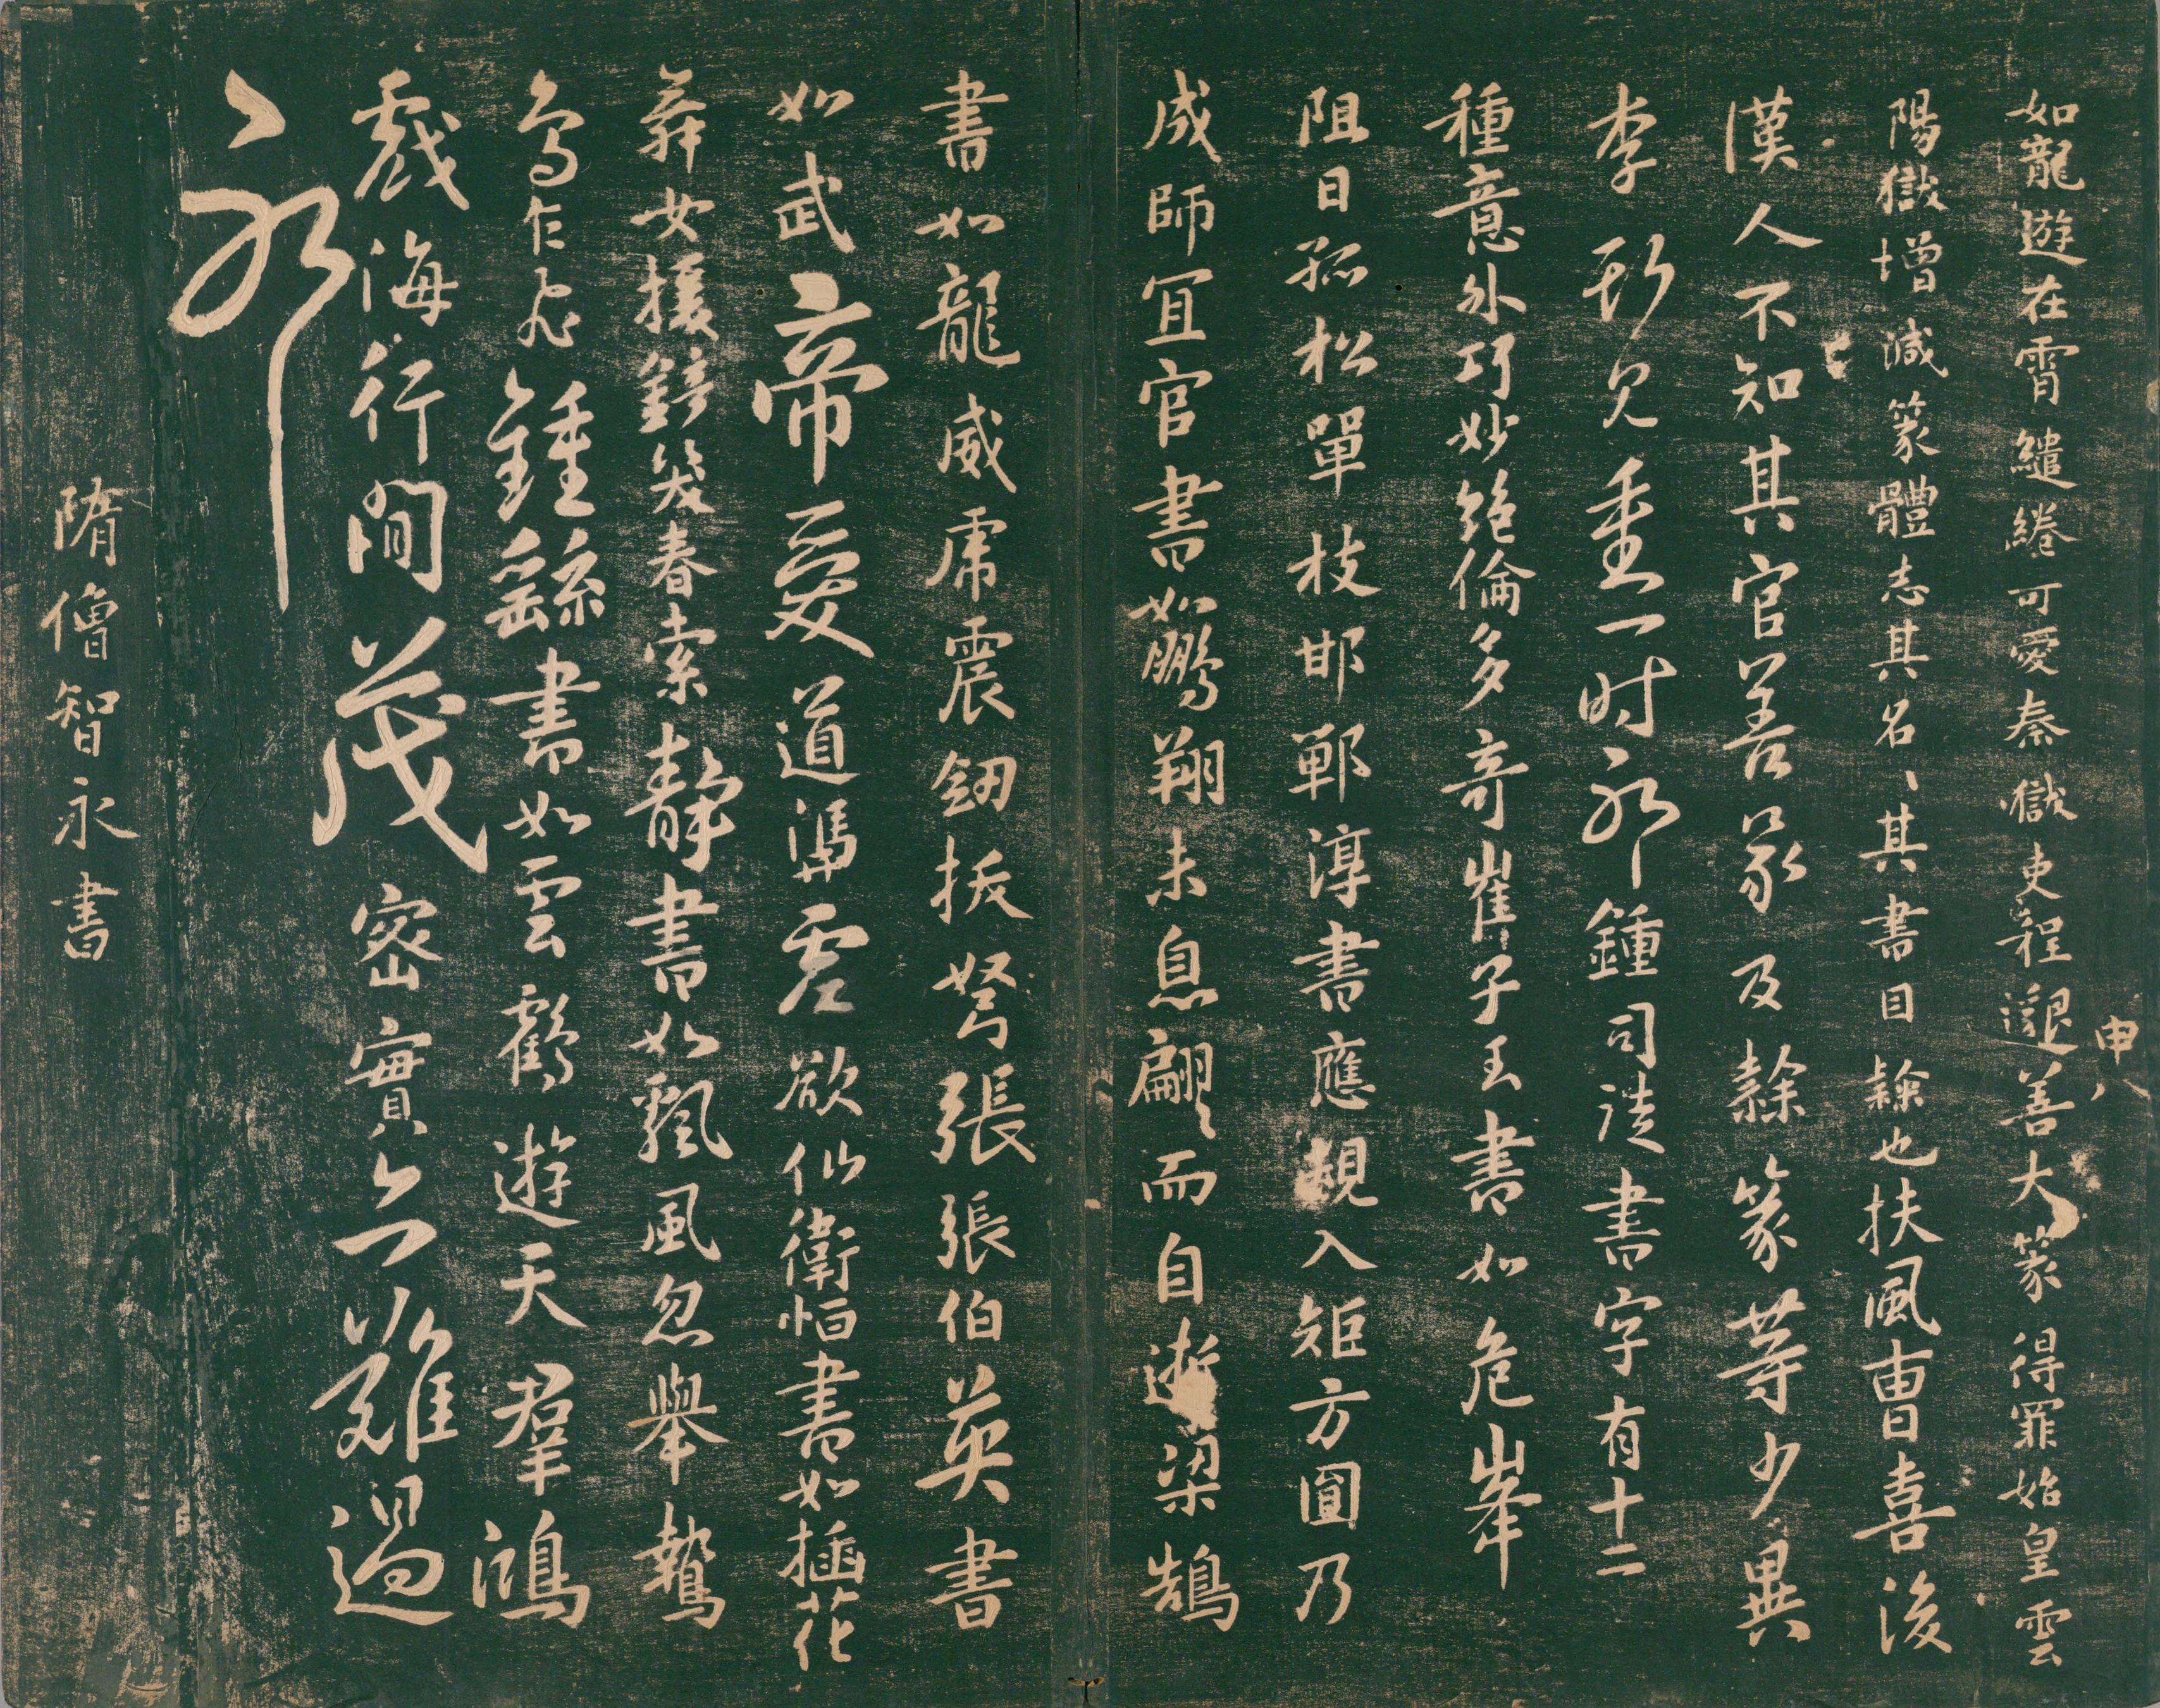 申八
如龍遊在霄繾綣可愛秦獄吏程邈善大篆得罪始皇雲
陽獄增減篆體志其名、其書目隸也扶風曹喜後
漢人不知其官善篆及隸篆等少異
李斯見重一时耶鍾司徒書字有十二
種意外巧妙絕倫多奇崔子玉書如危峯
阻日孤松單枝邯鄲淳書應規入矩方圓乃
成師宜官書如鵬翔未息翩〻而自逝梁鵠
書如龍威虎震劒拔弩張張伯英書
如武帝愛道馮虛欲仙衛恒書如插花
舞女援鏡笑春索靜書如飄風忽舉鷙
鳥乍飛鍾繇書如雲鶴遊天羣鴻
戲海行間茂密實亦難過
耶
隋僧智永書